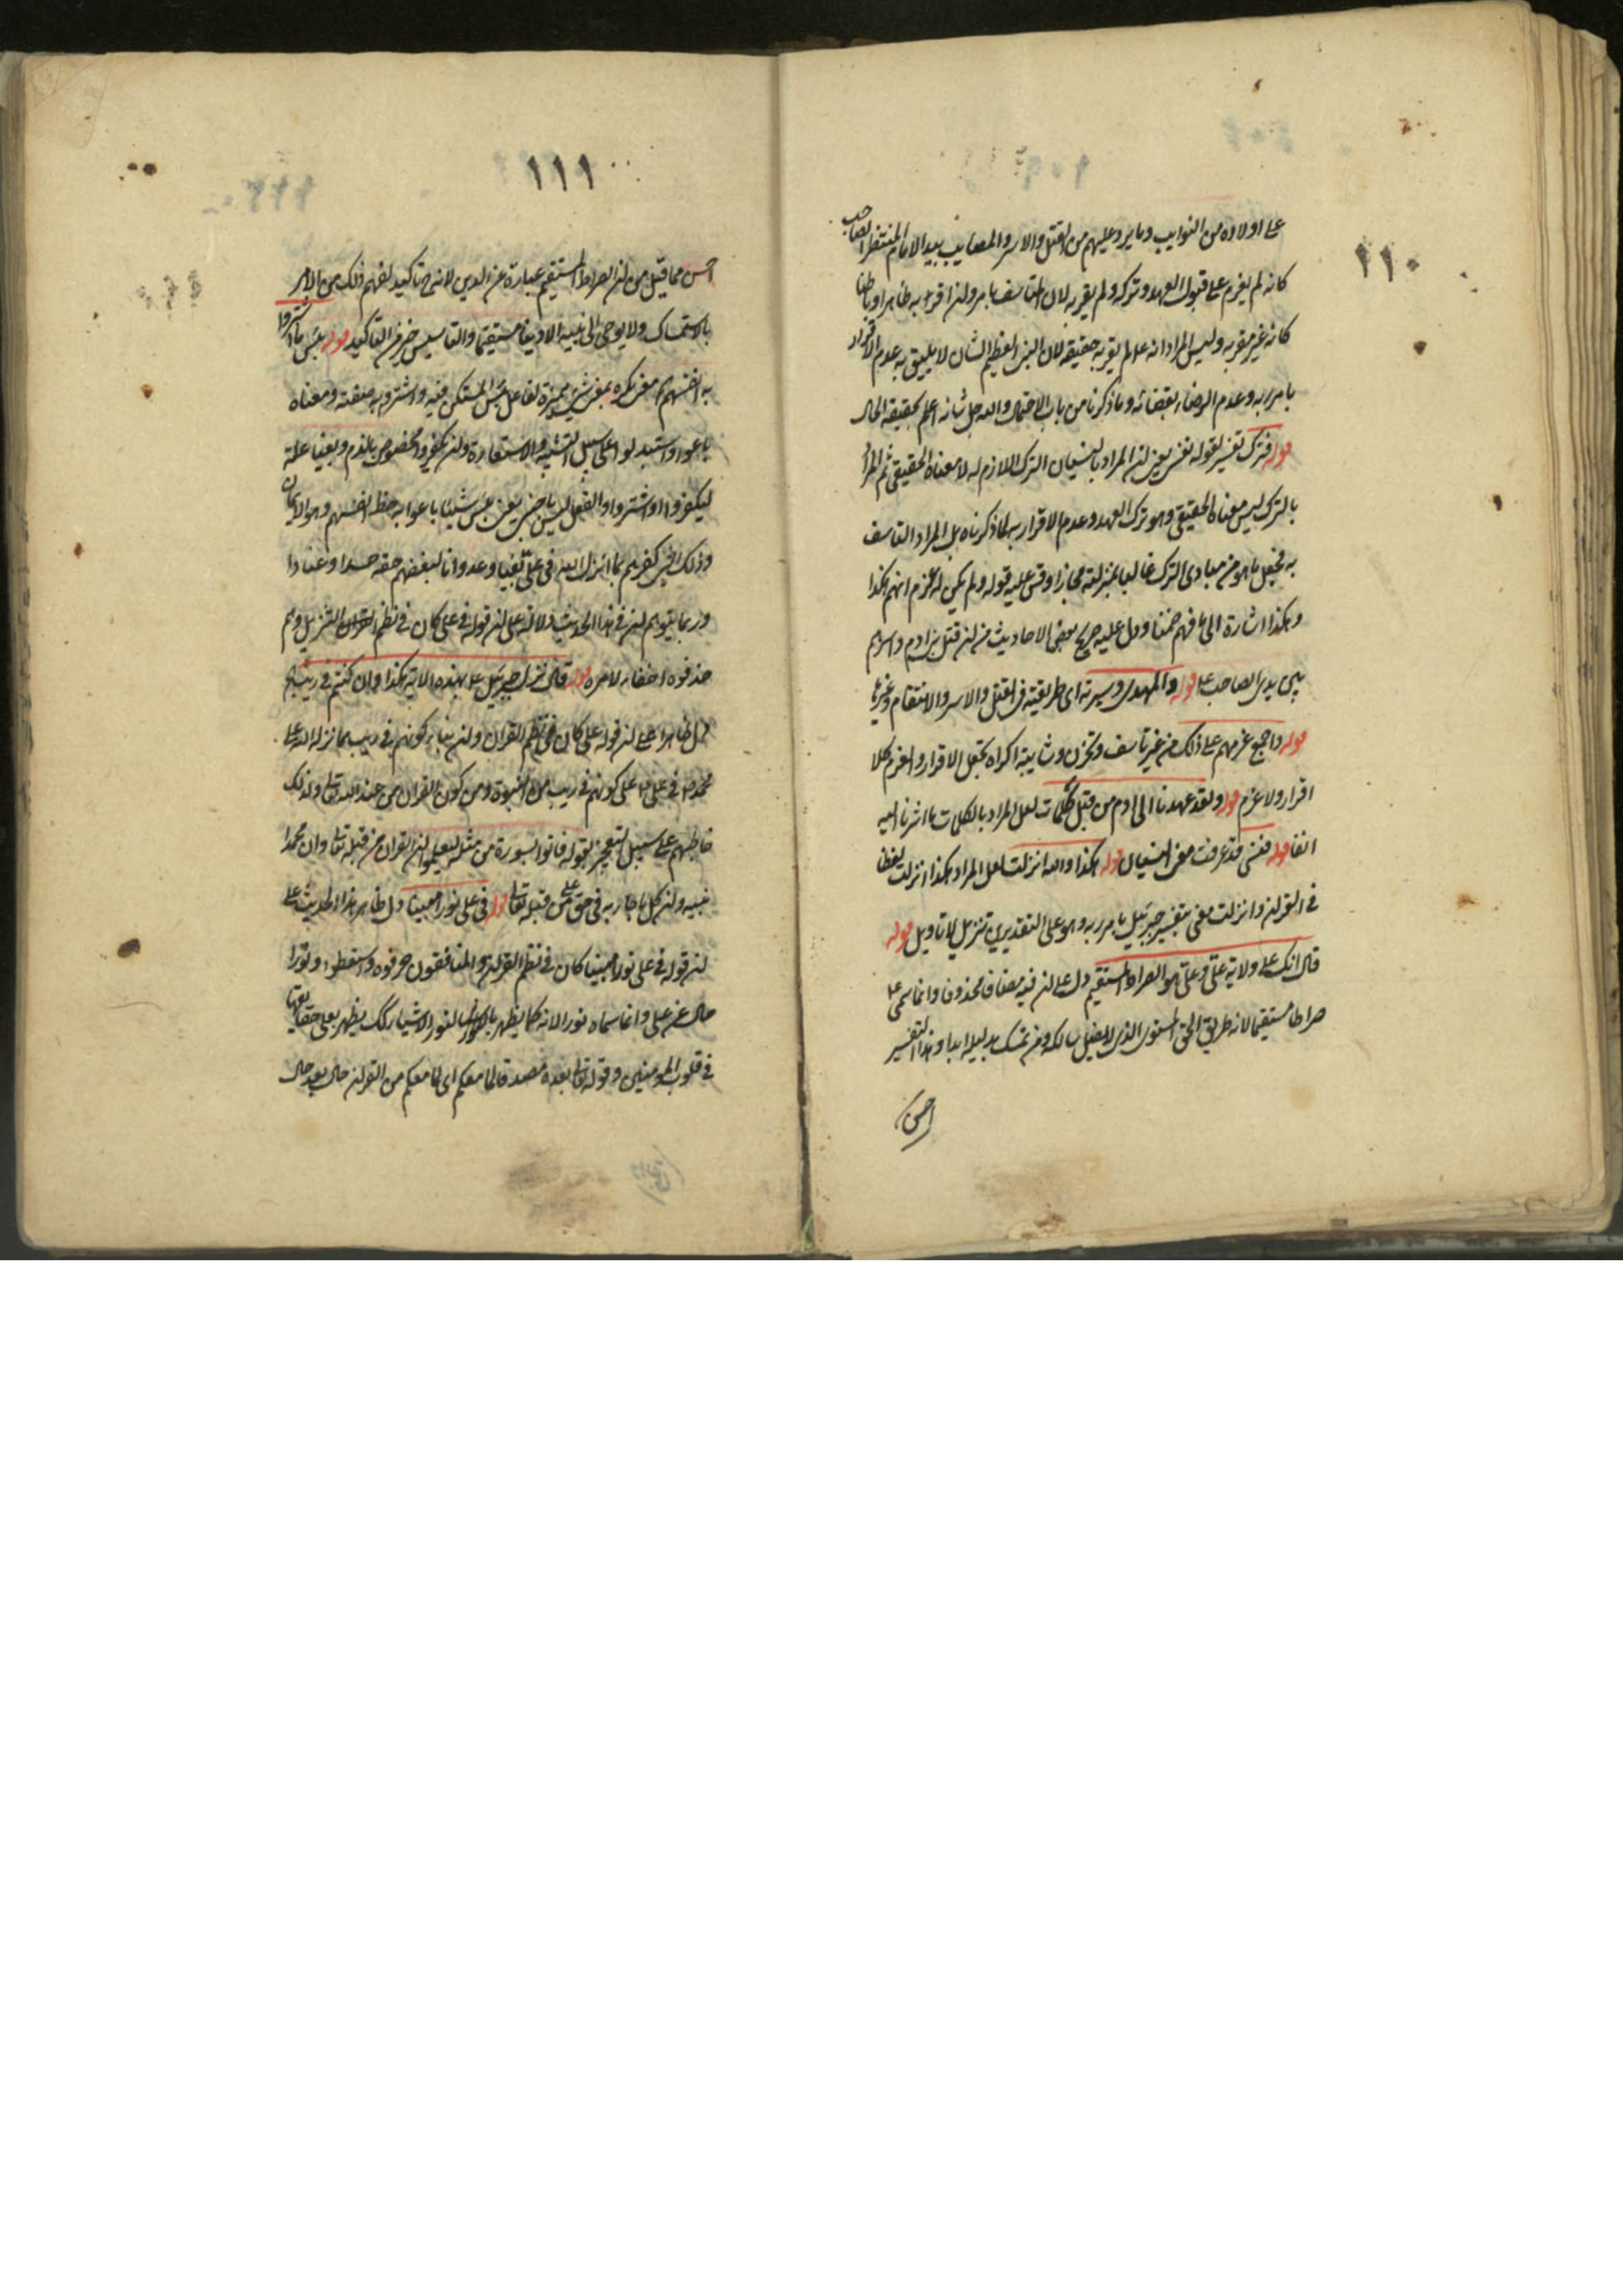 ١١٠
على اولاده من النوايب وما يرد عليهم من القتل والاسر والمصايب بيد الامام المنتظر الصاحب
كانه لم يعزم على قبول العهد وتركه ولم يقر به لان المتاسف بامر وان اقر به ظاهرا وباطنا
كانه غير مقر به وليس المراد انه عالم يقر به حقيقة لان النبي العظيم الشان لا يليق به عدم الاقرار
بامر ربه وعدم الرضا بقضائه وما ذكرنا من باب الاحتمال والله جل شانه اعلم بحقيقة الحال
قوله فترك تفسير لقوله فنسي يعني ان المراد بالنسيان الترك اللازم له لا معناه الحقيقي ثم المراد
بالترك ليس معناه الحقيقي وهو ترك العهد وعدم الاقرار به لما ذكرناه بل المراد التاسف
به فجعل ما هو من مبادى الترك غالبا بمنزلته مجازا وقس عليه قوله ولم يكن له عزم انهم هكذا
وهكذا اشارة الى ما فهم ضمنا ودل عليه صريح بعض الاحاديث من ان قتل بني ادم واسرهم
بين يدى الصاحب ع قوله والمهدى وسيرته اى طريقته فى القتل والاسر والانتقام وغيرها
قوله واجمع عزمهم على ذلك من غير تاسف وتحزن وشايبة اكراه بجعل الاقرار والعزم كلا
اقرار ولا عزم قوله ولقد عهدنا الى ادم من قبل كلمات لعل المراد بالكلمات ما اشرنا اليه
انفا قوله فنسي قد عرفت معنى النسيان قوله هكذا والله انزلت لعل المراد هكذا انزلت لفظا
فى القران وانزلت معنى بتفسير جبرئيل بامر ربه وهو على التقديرين تنزيل لا تاويل قوله
قال انك على ولاية علي وعلي هو الصراط المستقيم دل على ان فيه مضافا محذوفا وانما سمى ع
صراطا مستقيما لانه طريق الحق المستوى الذى لا يضل سالكه ومن تمسك بذيله ابدا وهذا التفسير
احسن
١١١
احسن مما قيل من ان الصراط المستقيم عبارة عن الدين لانه ح تاكيد لفهم ذلك من الامر
بالاستمساك ولا يوحى الى نبيه الا دينا مستقيما والتاسيس خير من التاكيد قوله بئس ما اشتروا
به انفسهم ما نكرة بمعنى شيء مميزة لفاعل بئس المستكن فيه واشتروا به صفته ومعناه
باعوا واستبدلوا على سبيل التشبيه والاستعارة وان يكفروا مخصوص بالذم وبغيا علة
ليكفروا او اشتروا والفعل ليس باجنبي يعني بئس شيئا باعوا به حظ انفسهم وهو الايمان
وذلك الشى كفرهم بما انزل الله فى علي بغيا وعدوانا لبغضهم حقه حسدا وعنادا
وربما يتوهم ان فى هذا الحديث دلالة على ان قوله فى علي كان فى نظم القران التنزيل وهم
حذفوه اخفاء لامره قوله قال نزل جبرئيل ع بهذه الاية هكذا وان كنتم فى ريب الخ
دل ظاهرا على ان قوله على كان فى نظم القران وان بناء كونهم فى ريب مما نزله الله على
محمد ص فى علي ع على كونهم فى ريب من النبوة ومن كون القران من عند الله تعالى ولذلك
خاطبهم على سبيل التعجيز بقوله فاتوا بسورة من مثله ليعلموا ان القران من قبله تعالى وان محمدا
نبيه وان كل ما جاء به فى حق علي من قبله تعالى قوله فى على نورا مبينا دل ظاهر هذا الحديث على
ان قوله فى علي نورا مبينا كان فى نظم القران والمنافقون حرفوه واسقطوه ونورا
حال عن علي وانما سماه نورا لانه كما يظهر بالنور الاشياء كذلك يظهر بعلي حقايقها
فى قلوب المومنين وقوله تعالى بعده مصدقا لما معكم اى لما معكم من القران حال بعد حال